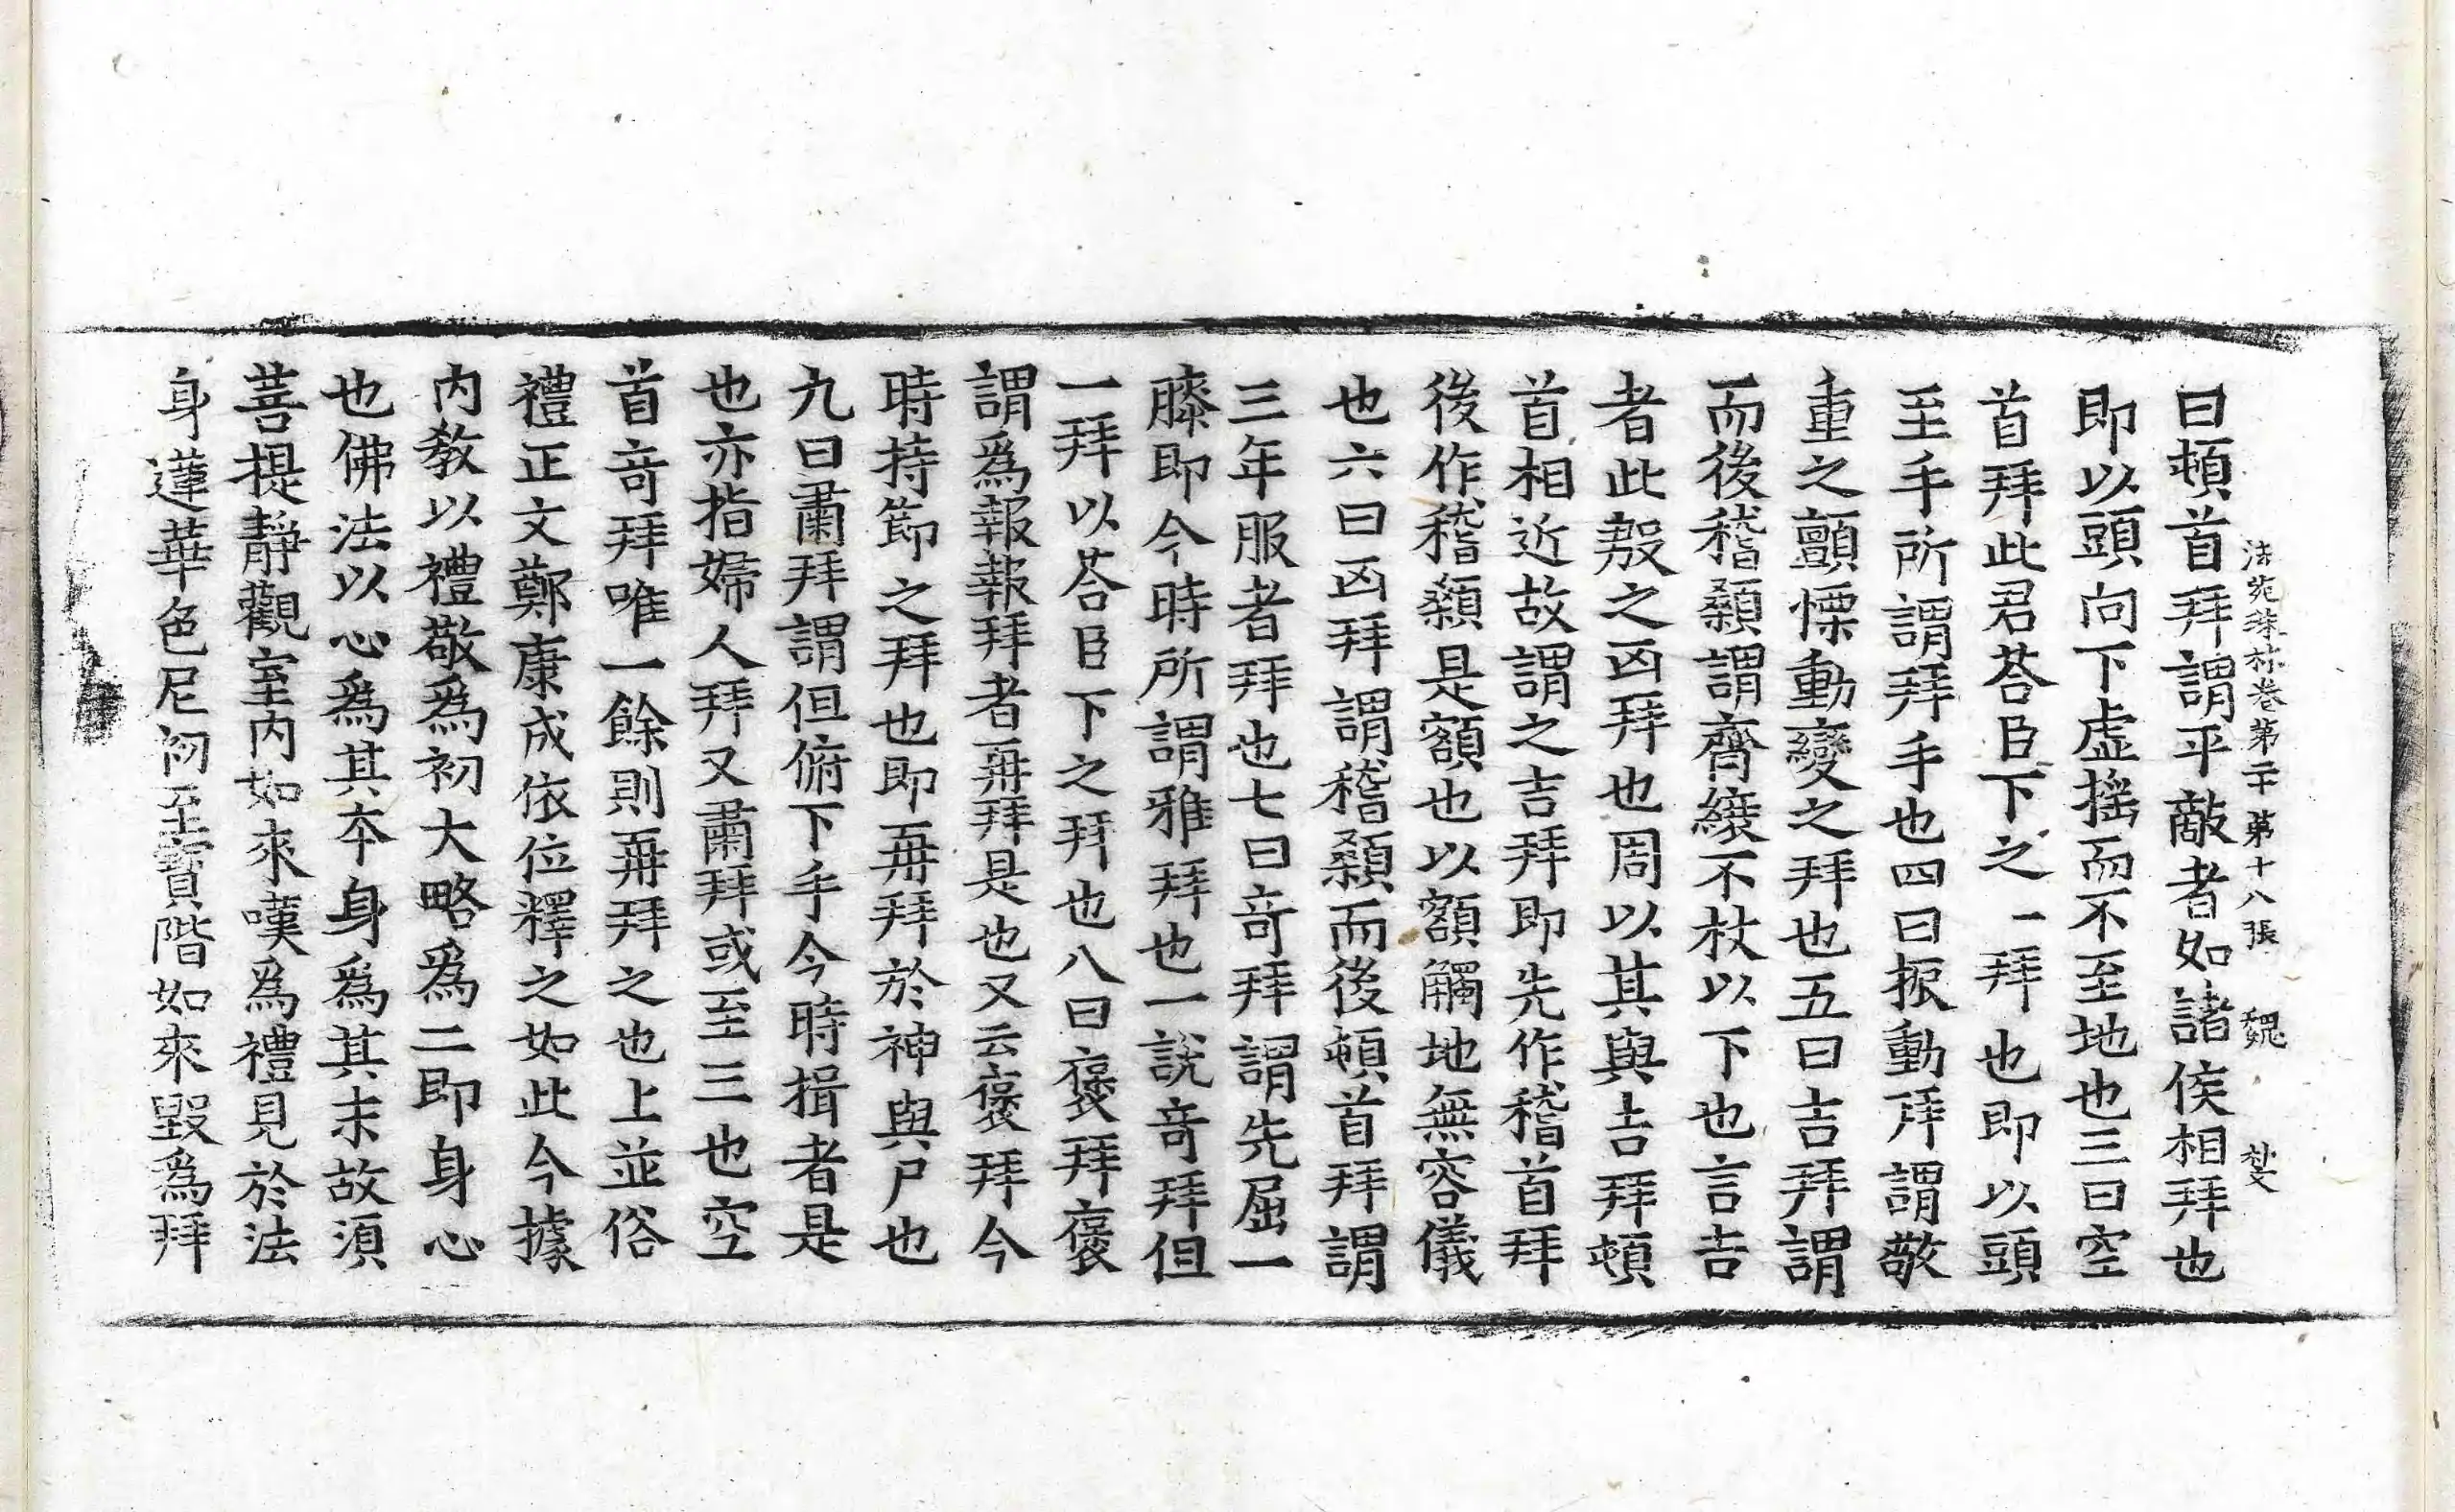 法苑珠林卷第二十 第十八張 魏
曰頓首拜謂平敵者如諸侯相拜也
即以頭向下虛搖而不至地也三曰空
首拜此君荅臣下之一拜也即以頭
至手所謂拜手也四曰振動拜謂敬
重之顫慄動變之拜也五曰吉拜謂
而後稽顙謂齊縗不杖以下也言吉
者此殷之凶拜也周以其與吉拜頓
首相近故謂之吉拜即先作稽首拜
後作稽顙是額也以額觸地無容儀
也六曰凶拜謂稽顙而後頓首拜謂
三年服者拜也七曰竒拜謂先屈一
膝即今時所謂雅拜也一說竒拜但
一拜以荅臣下之拜也八曰襃拜襃
謂爲報報拜者再拜是也又云襃拜今
時持節之拜也即再拜於神與尸也
九曰肅拜謂但俯下手今時揖者是
也亦指婦人拜又肅拜或至三也空
首竒拜唯一餘則再拜之也上並俗
禮正文鄭康成依位釋之如此今據
内教以禮敬爲初大略爲二即身心
也佛法以心爲其夲身爲其末故須
菩提靜觀室内如來嘆爲禮見於法
身蓮華色尼初至寶階如來毀爲拜